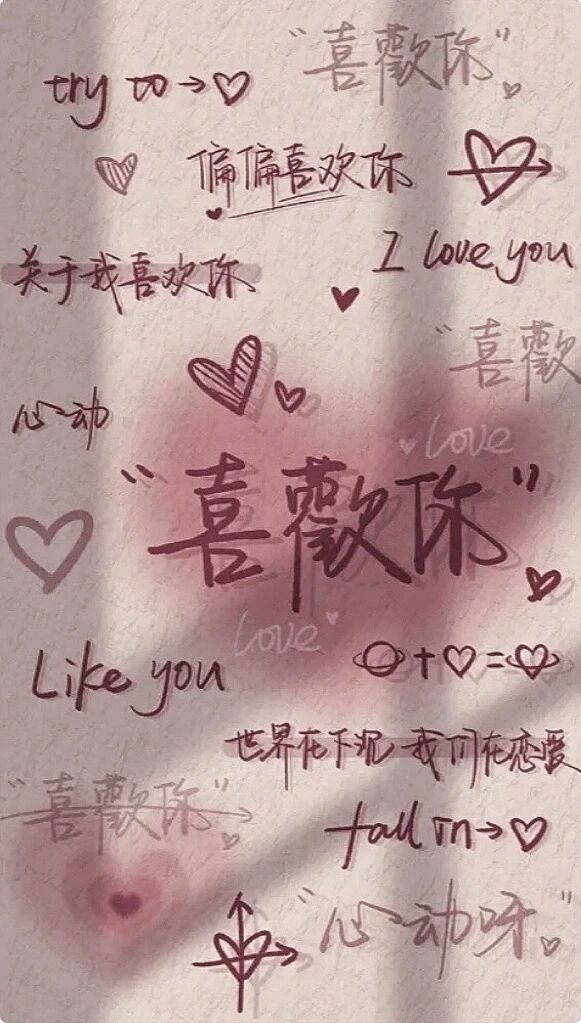 "喜歡你"
try to→♡
偏偏喜欢你
I love you
关于我喜欢你
"喜歡
心动
love
"喜歡你"
love
Like you
+♡=
世界在下沉 我们在恋爱
"喜歡你"
fall in→♡
"心动呀"